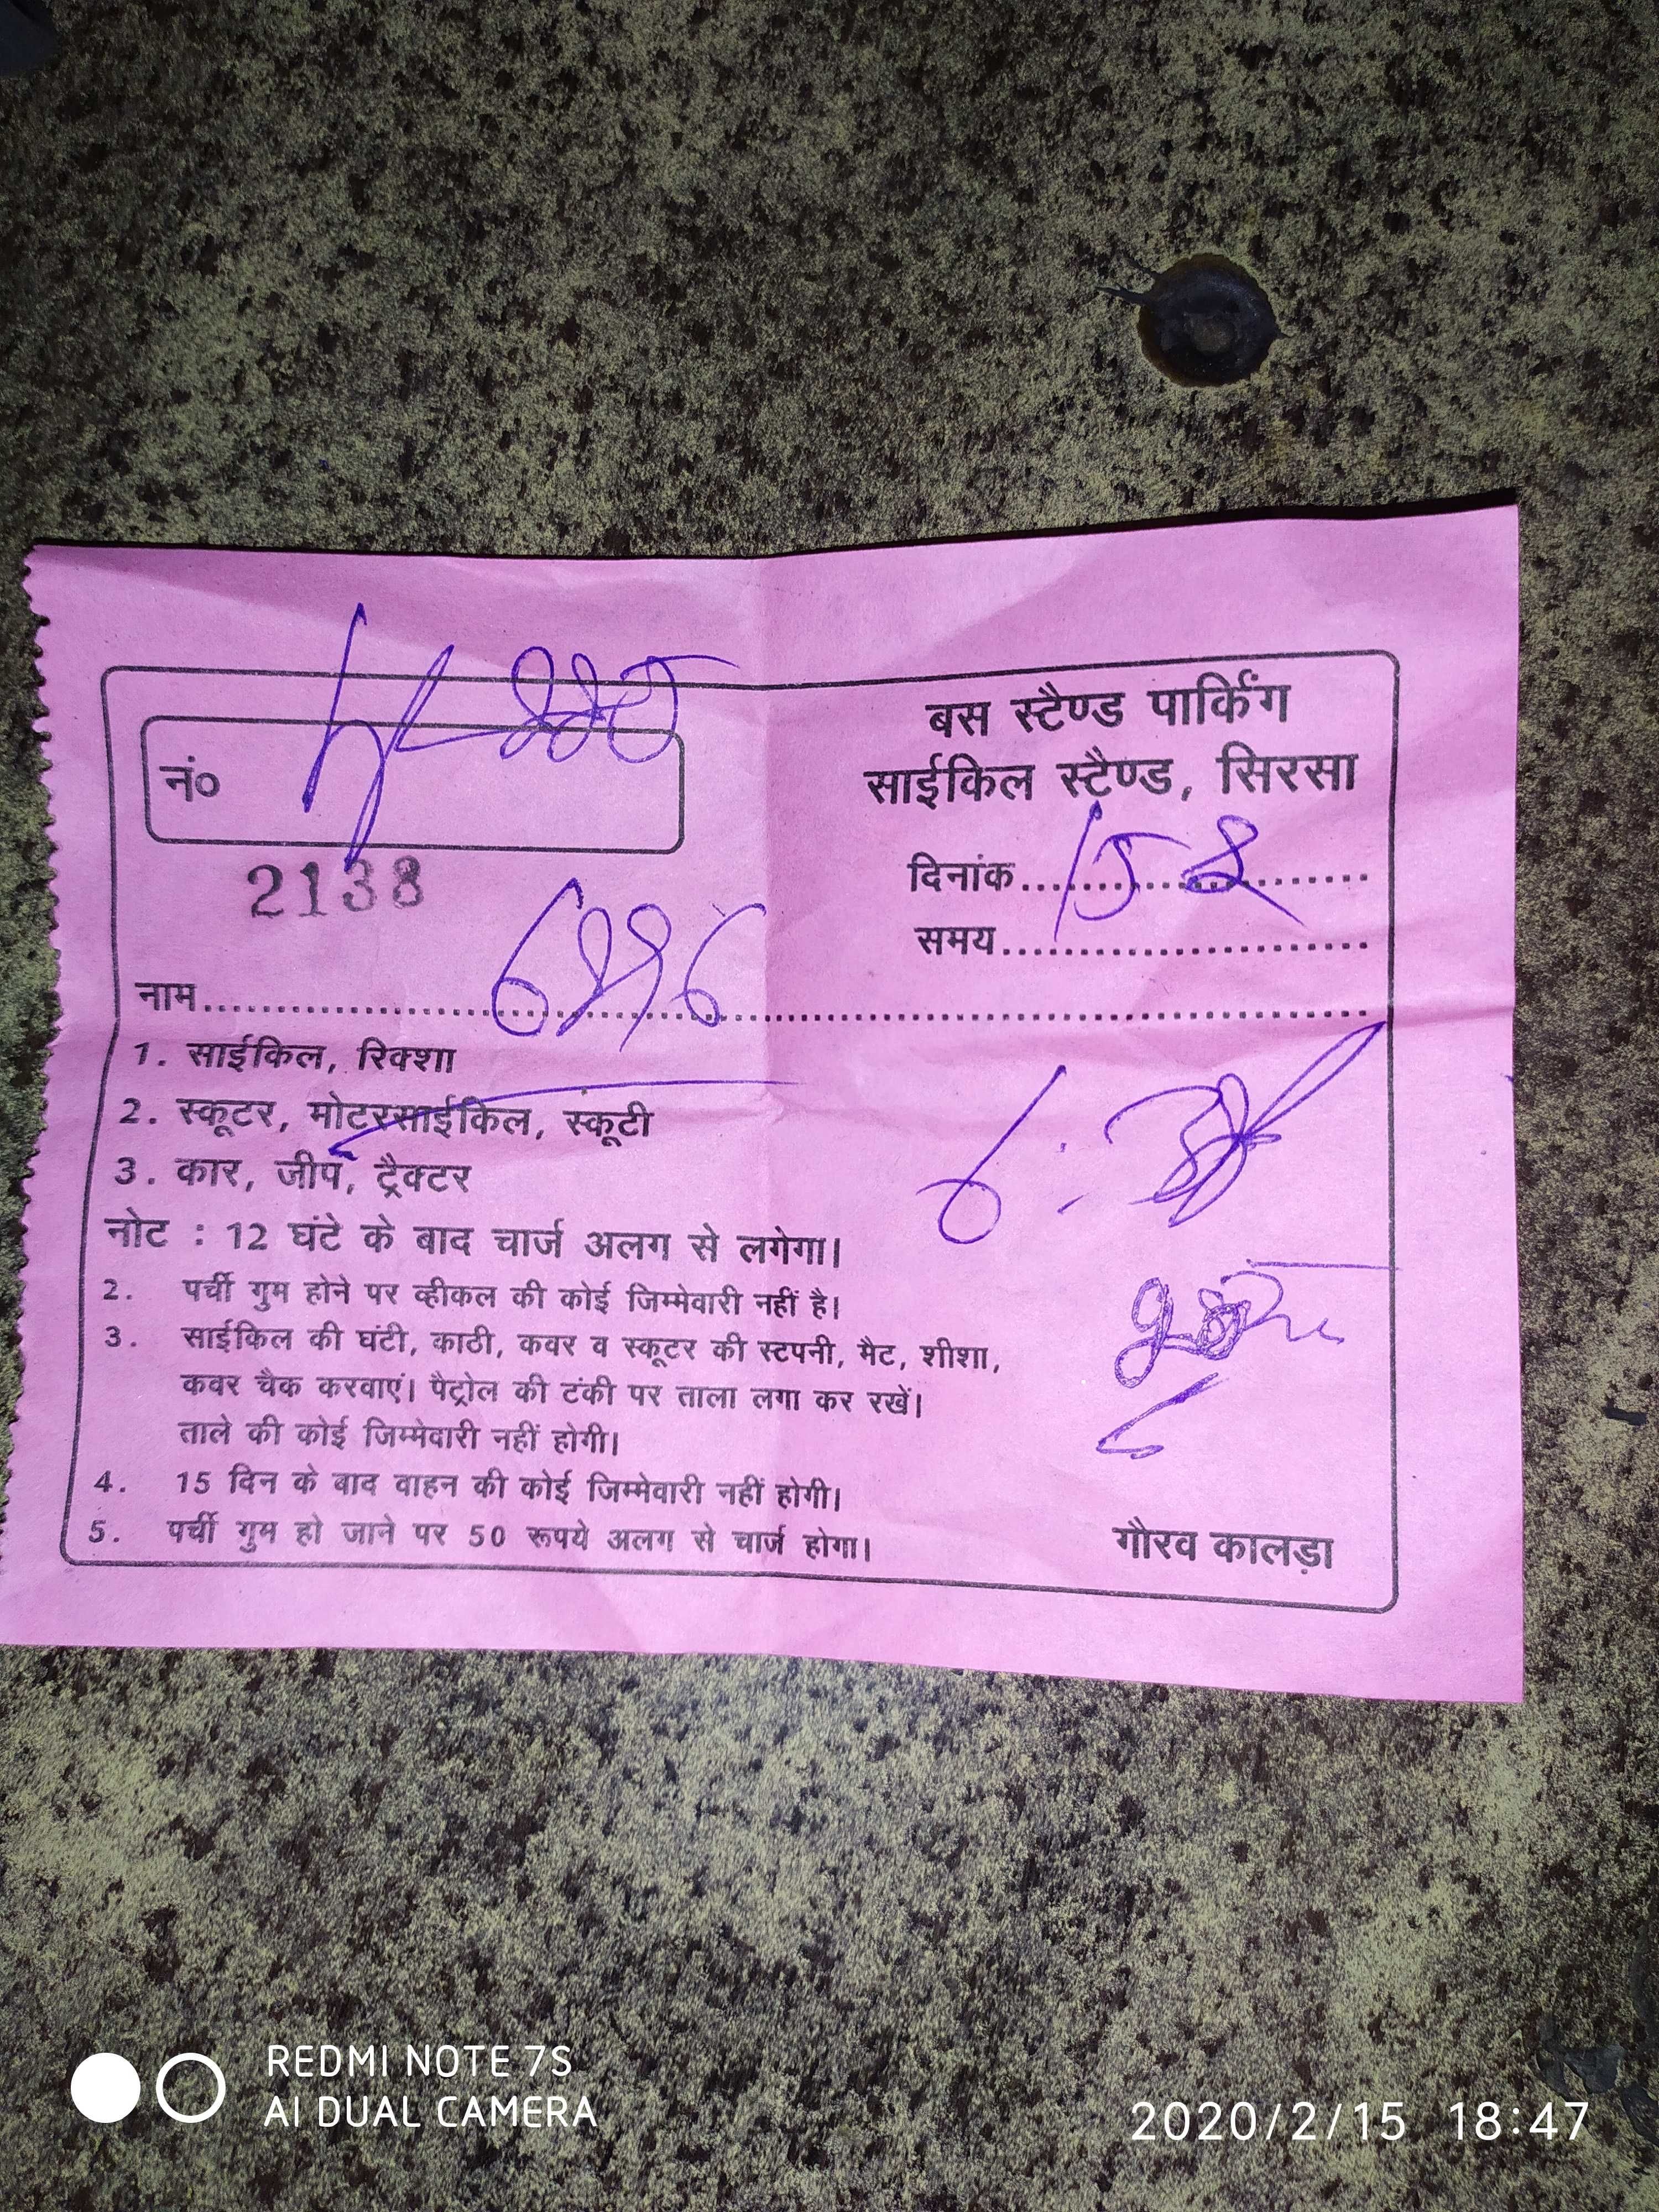 बस स्टैण्ड पार्किंग
साईकिल स्टैण्ड, सिरसा
नं०
2138
दिनांक 15-2
समय
नाम
1. साईकिल, रिक्शा
2. स्कूटर, मोटरसाईकिल, स्कूटी
3. कार, जीप, ट्रैक्टर
नोट : 12 घंटे के बाद चार्ज अलग से लगेगा।
2. पर्ची गुम होने पर व्हीकल की कोई जिम्मेवारी नहीं है।
3. साईकिल की घंटी, काठी, कवर व स्कूटर की स्टपनी, मैट, शीशा,
कवर चैक करवाएं। पैट्रोल की टंकी पर ताला लगा कर रखें।
ताले की कोई जिम्मेवारी नहीं होगी।
4. 15 दिन के बाद वाहन की कोई जिम्मेवारी नहीं होगी।
5. पर्ची गुम हो जाने पर 50 रूपये अलग से चार्ज होगा।
गौरव कालड़ा
REDMI NOTE 7S
AI DUAL CAMERA
2020/2/15 18:47